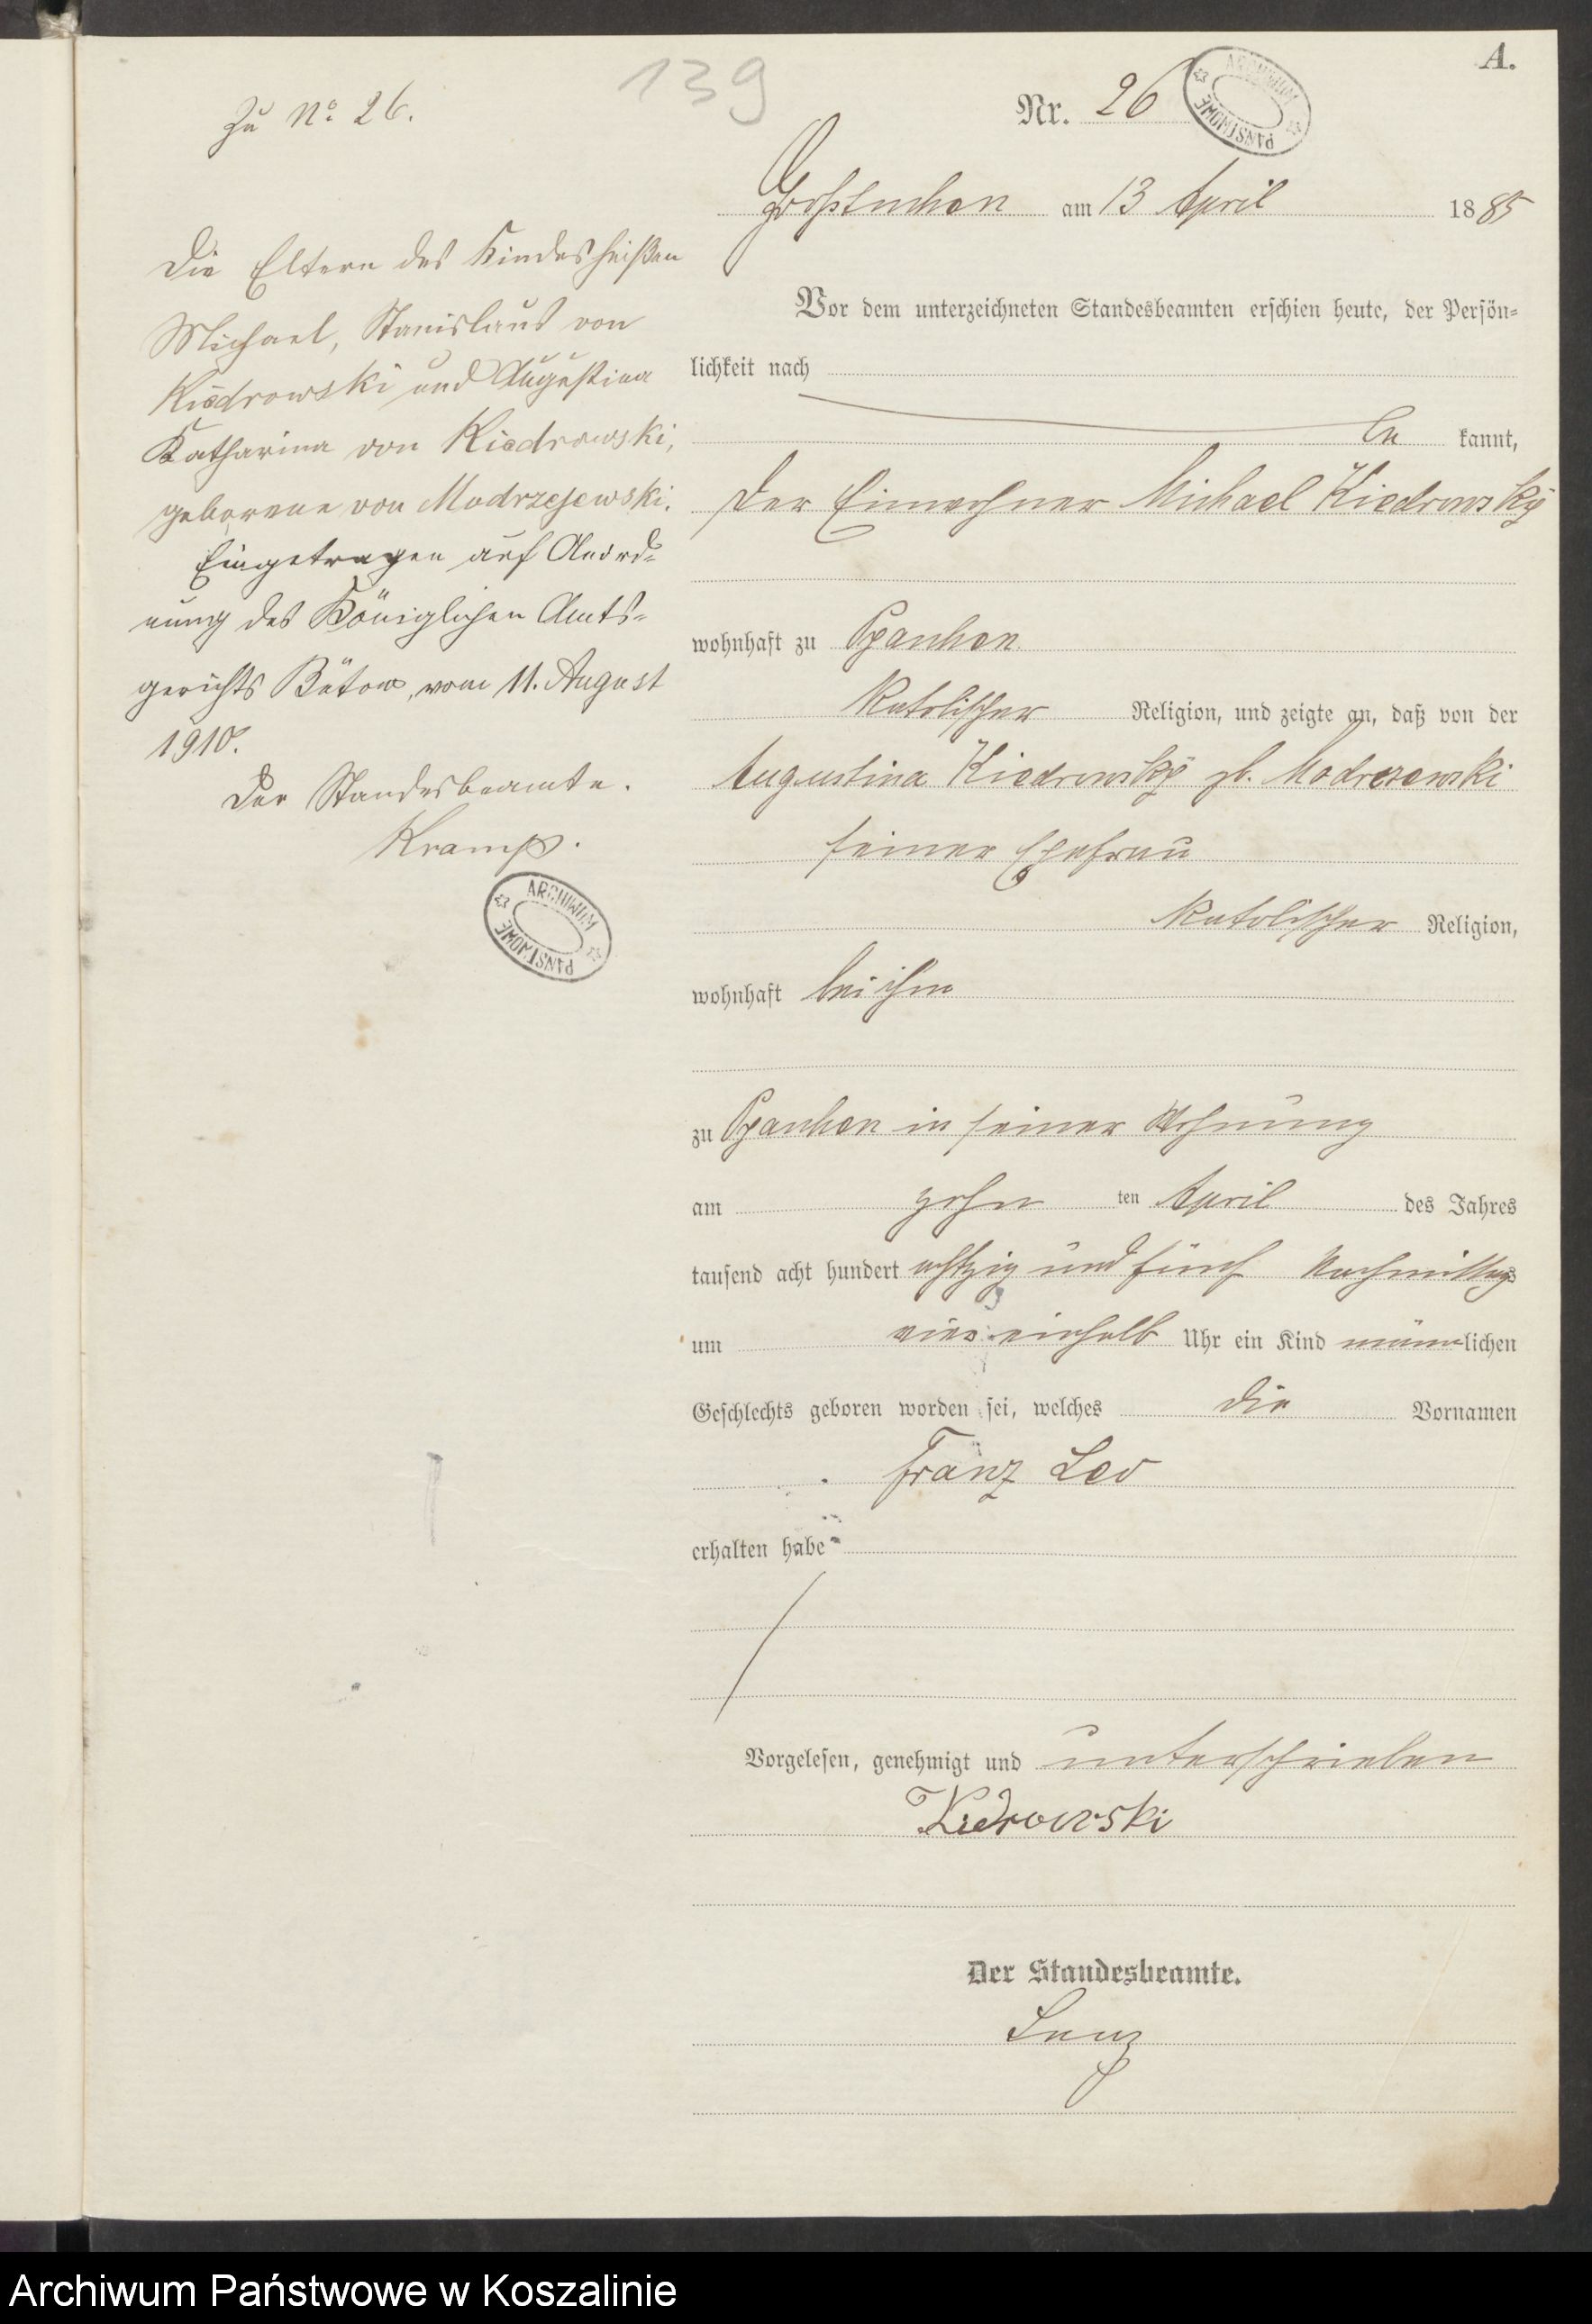 A.
139
Zu No 26.
Die Eltern des Kindes heißen
Michael, Stanislaus von
Kiedrowski und Augustina
Katharina von Kiedrowski,
geborene von Modrzejewski.
Eingetragen auf Anord-
nung des Königlichen Amts-
gerichts Bütow, vom 11. August
1910.
Der Standesbeamte.
Kramp.
ARCHIWUM PAŃSTWOWE
Nr. 26
ARCHIWUM PAŃSTWOWE
Großtuchen am 13 April 1885
Vor dem unterzeichneten Standesbeamten erschien heute, der Persön-
lichkeit nach
be kannt,
der Einwohner Michael Kiedrowsky
wohnhaft zu
katolischer Religion, und zeigte an, daß von der
Augustina Kiedrowsky gb. Modrezewski
seiner Ehefrau
katolischer Religion,
wohnhaft bei ihm
zu in seiner Wohnung
am zehn ten April des Jahres
tausend acht hundert achtzig und fünf Nachmittags
um vier einhalb Uhr ein Kind männlichen
Geschlechts geboren worden sei, welches die Vornamen
Franz Leo
erhalten habe
Vorgelesen, genehmigt und unterschrieben
Kiedrowski
Der Standesbeamte.
Archiwum Państwowe w Koszalinie